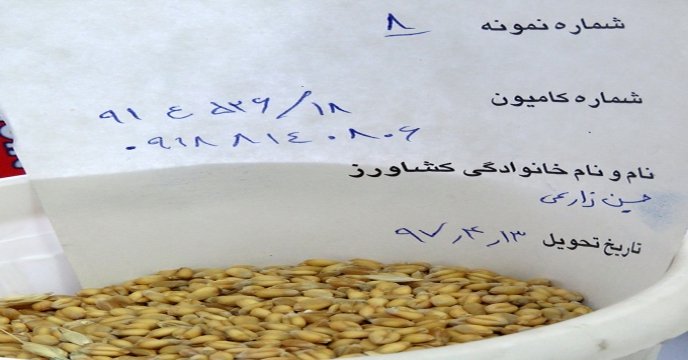 شماره نمونه ۸
شماره کامیون ۹۱ ع ۵۳۶/۱۸
۰۹۱۸۸۱۴۰۸۰۶
نام و نام خانوادگی کشاورز
حسین زارعی
تاریخ تحویل ۹۷٫۴٫۱۳